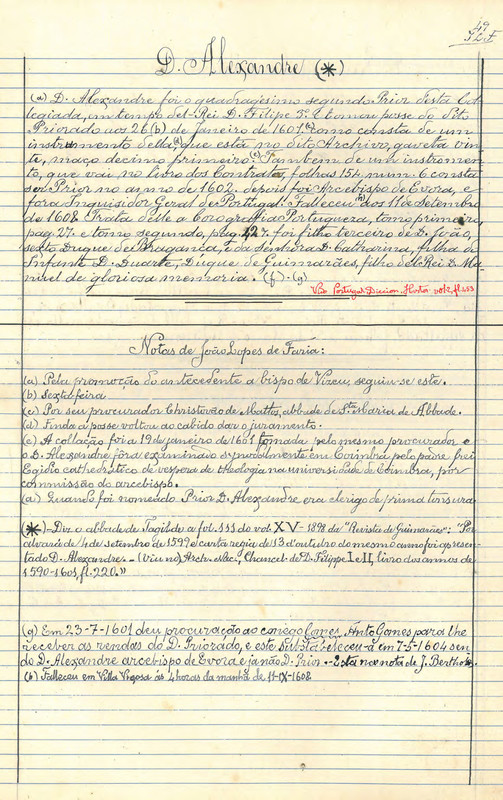 49
J.L.F.
D. Alexandre (*)
(a) D. Alexandre foi o quadragesimo segundo Prior desta Col-
legiada, em tempo del-Rei D. Filipe 2º. E tomou posse do dito
Priorado aos 26 (b) de Janeiro de 1601 (c) como consta de um
instrumento della, (d) que está no dito Archivo, gaveta vin-
te, maço decimo primeiro. (e) Tambem de um instromen-
to, que vai no livro dos Contratos, folhas 154, num. 6 consta
ser Prior no anno de 1602, depois foi Arcebispo de Evora, e
fora Inquisidor Geral de Portugal. Falleceu (h) aos 11 de Setembro
de 1608. Trata delle a Corografia Portugueza, tomo primeiro,
pag. 27. e tomo segundo, pag. 427. foi filho terceiro de D. João,
sexto Duque de Bragança, e da Senhora D. Catharina, filha do
Infante D. Duarte, Duque de Guimarães, filho del-Rei D. Ma-
noel de gloriosa memoria. (f). (g)
Vide Portugal Diccion. Histor. vol. 2, fl. 453
Notas de João Lopes de Faria:
(a) Pela promoção do antecedente a bispo de Viseu, seguiu-se este.
(b) Sexta-feira
(c) Por seu procurador Christovão de Mattos, abbade de Stª. Maria de Abbade.
(d) Finda a posse voltou ao cabido dar o juramento.
(e) A collação foi a 19 de janeiro de 1601 tomada pelo mesmo procurador e
o D. Alexandre fôra examinado synodalmente em Coimbra pelo padre frei
Egidio cathedratico de vespera de theologia na universidade de Coimbra, por
commissão do arcebispo.
(a) Quando foi nomeado Prior D. Alexandre era clerigo de prima tonsura.
(*) - Diz o abbade de Tagilde a fol. 111 do vol. XV - 1898 da "Revista de Guimarães": "Por
alvará de 4 de setembro de 1599 e carta regia de 13 d'outubro do mesmo anno foi apresen-
tado D. Alexandre. - (Viu no) Arch. Nac., Chancel. de D. Filippe I e II, livro dos annos de
1590-1601, fl. 220."
(g) Em 23-7-1601 deu procuração ao conego Gomes, Antº Gomes para lhe
receber as rendas do D. Priorado, e este substabeleceu-a em 7-5-1604 sen-
do D. Alexandre arcebispo de Evora e já não D. Prior. - Esta na nota de J. Berthol.
(h) Falleceu em Villa Viçosa ás 4 horas da manhã de 11-IX-1608